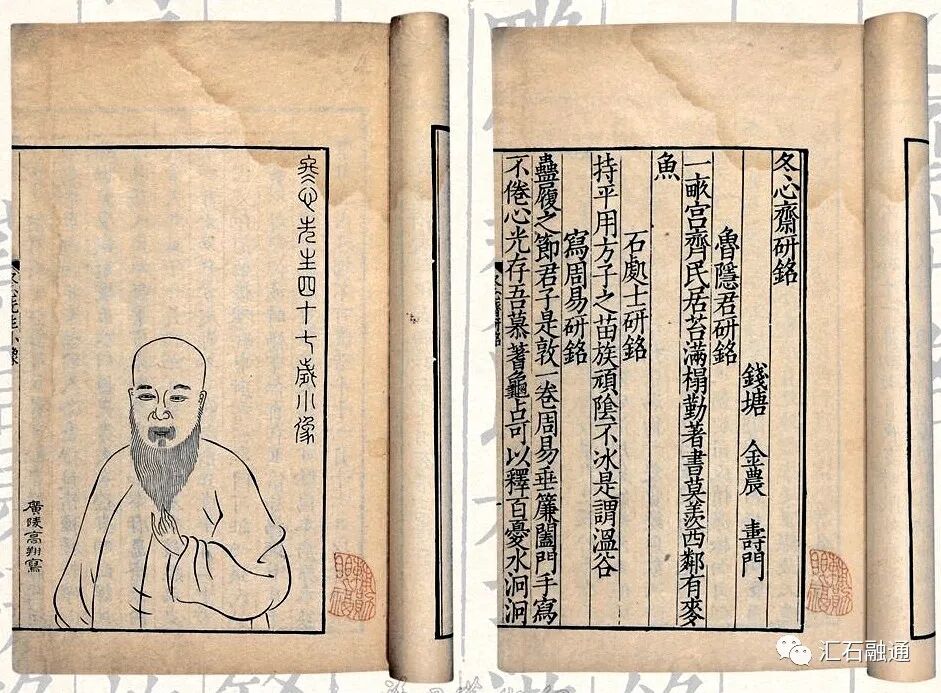 冬心先生四十七歲小像
廣陵高翔寫
冬心先生小像
冬心齋研銘
錢塘 金農 壽門
魯隱君研銘
一畝宮齊民居苔滿榻勤著書莫羨西鄰有麥
魚
石處士研銘
持平用方子之苗族頑陰不冰是謂溫谷
寫周易研銘
蠱履之節君子是敦一卷周易垂簾闔門手寫
不倦心光存吾慕蓍龜占可以釋百憂水泂泂
汇石融通